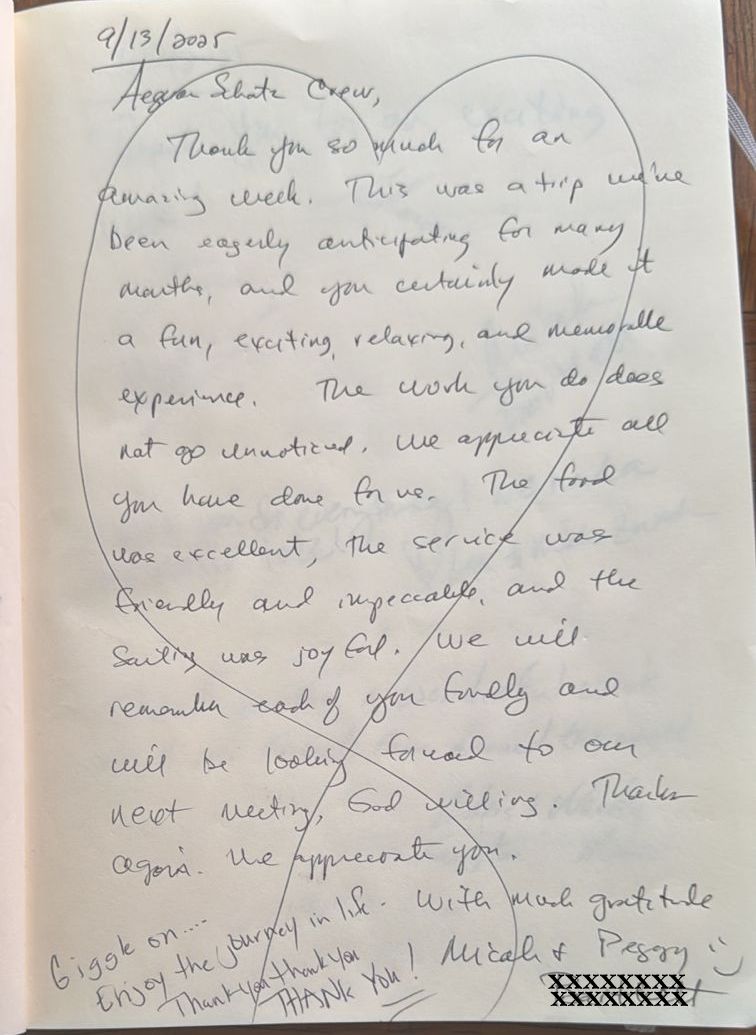 9/13/2025
Aegean Schatz Crew,
Thank you so much for an
amazing week. This was a trip we've
been eagerly anticipating for many
months, and you certainly made it
a fun, exciting, relaxing, and memorable
experience. The work you do does
not go unnoticed. We appreciate all
you have done for us. The food
was excellent, the service was
friendly and impeccable, and the
sailing was joyful. We will
remember each of you fondly and
will be looking forward to our
next meeting, God willing. Thanks
again. We appreciate you.
With much gratitude
Micah & Peggy :)
XXXXXXXX
XXXXXXXX
Giggle on....
Enjoy the journey in life.
Thank you thank you
THANK YOU!